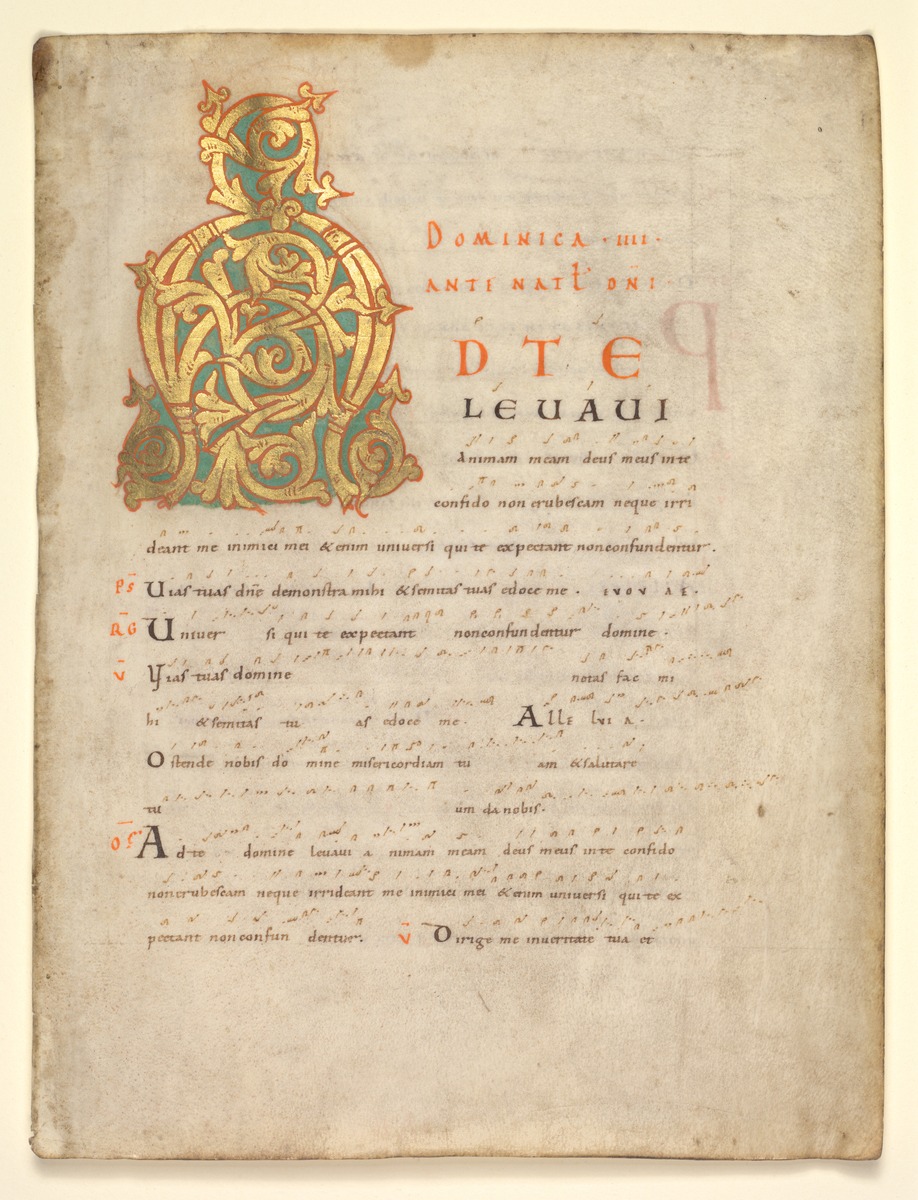 A
DOMINICA · IIII ·
ANTE NATŁ DÑI ·
D T E
LEUAUI
Animam meam deus meus inte
confido non erubescam neque irri
deant me inimici mei & enim universi qui te expectant nonconfundentur.
PS̄ Uias tuas dñe demonstra mihi & semitas tuas edoce me · EVOVAE ·
R̄G Univer si qui te expectant nonconfundentur domine ·
V̄ Uias tuas domine notas fac mi
hi & semitas tu as edoce me · Alle lui a ·
Ostende nobis do mine misericordiam tu am & salutare
tu um da nobis ·
OF̄ Ad te domine leuaui a nimam meam deus meus inte confido
nonerubescam neque irrideant me inimici mei & enim universi qui te ex
pectant nonconfun dentur. V̄ Dirige me inueritate tua et